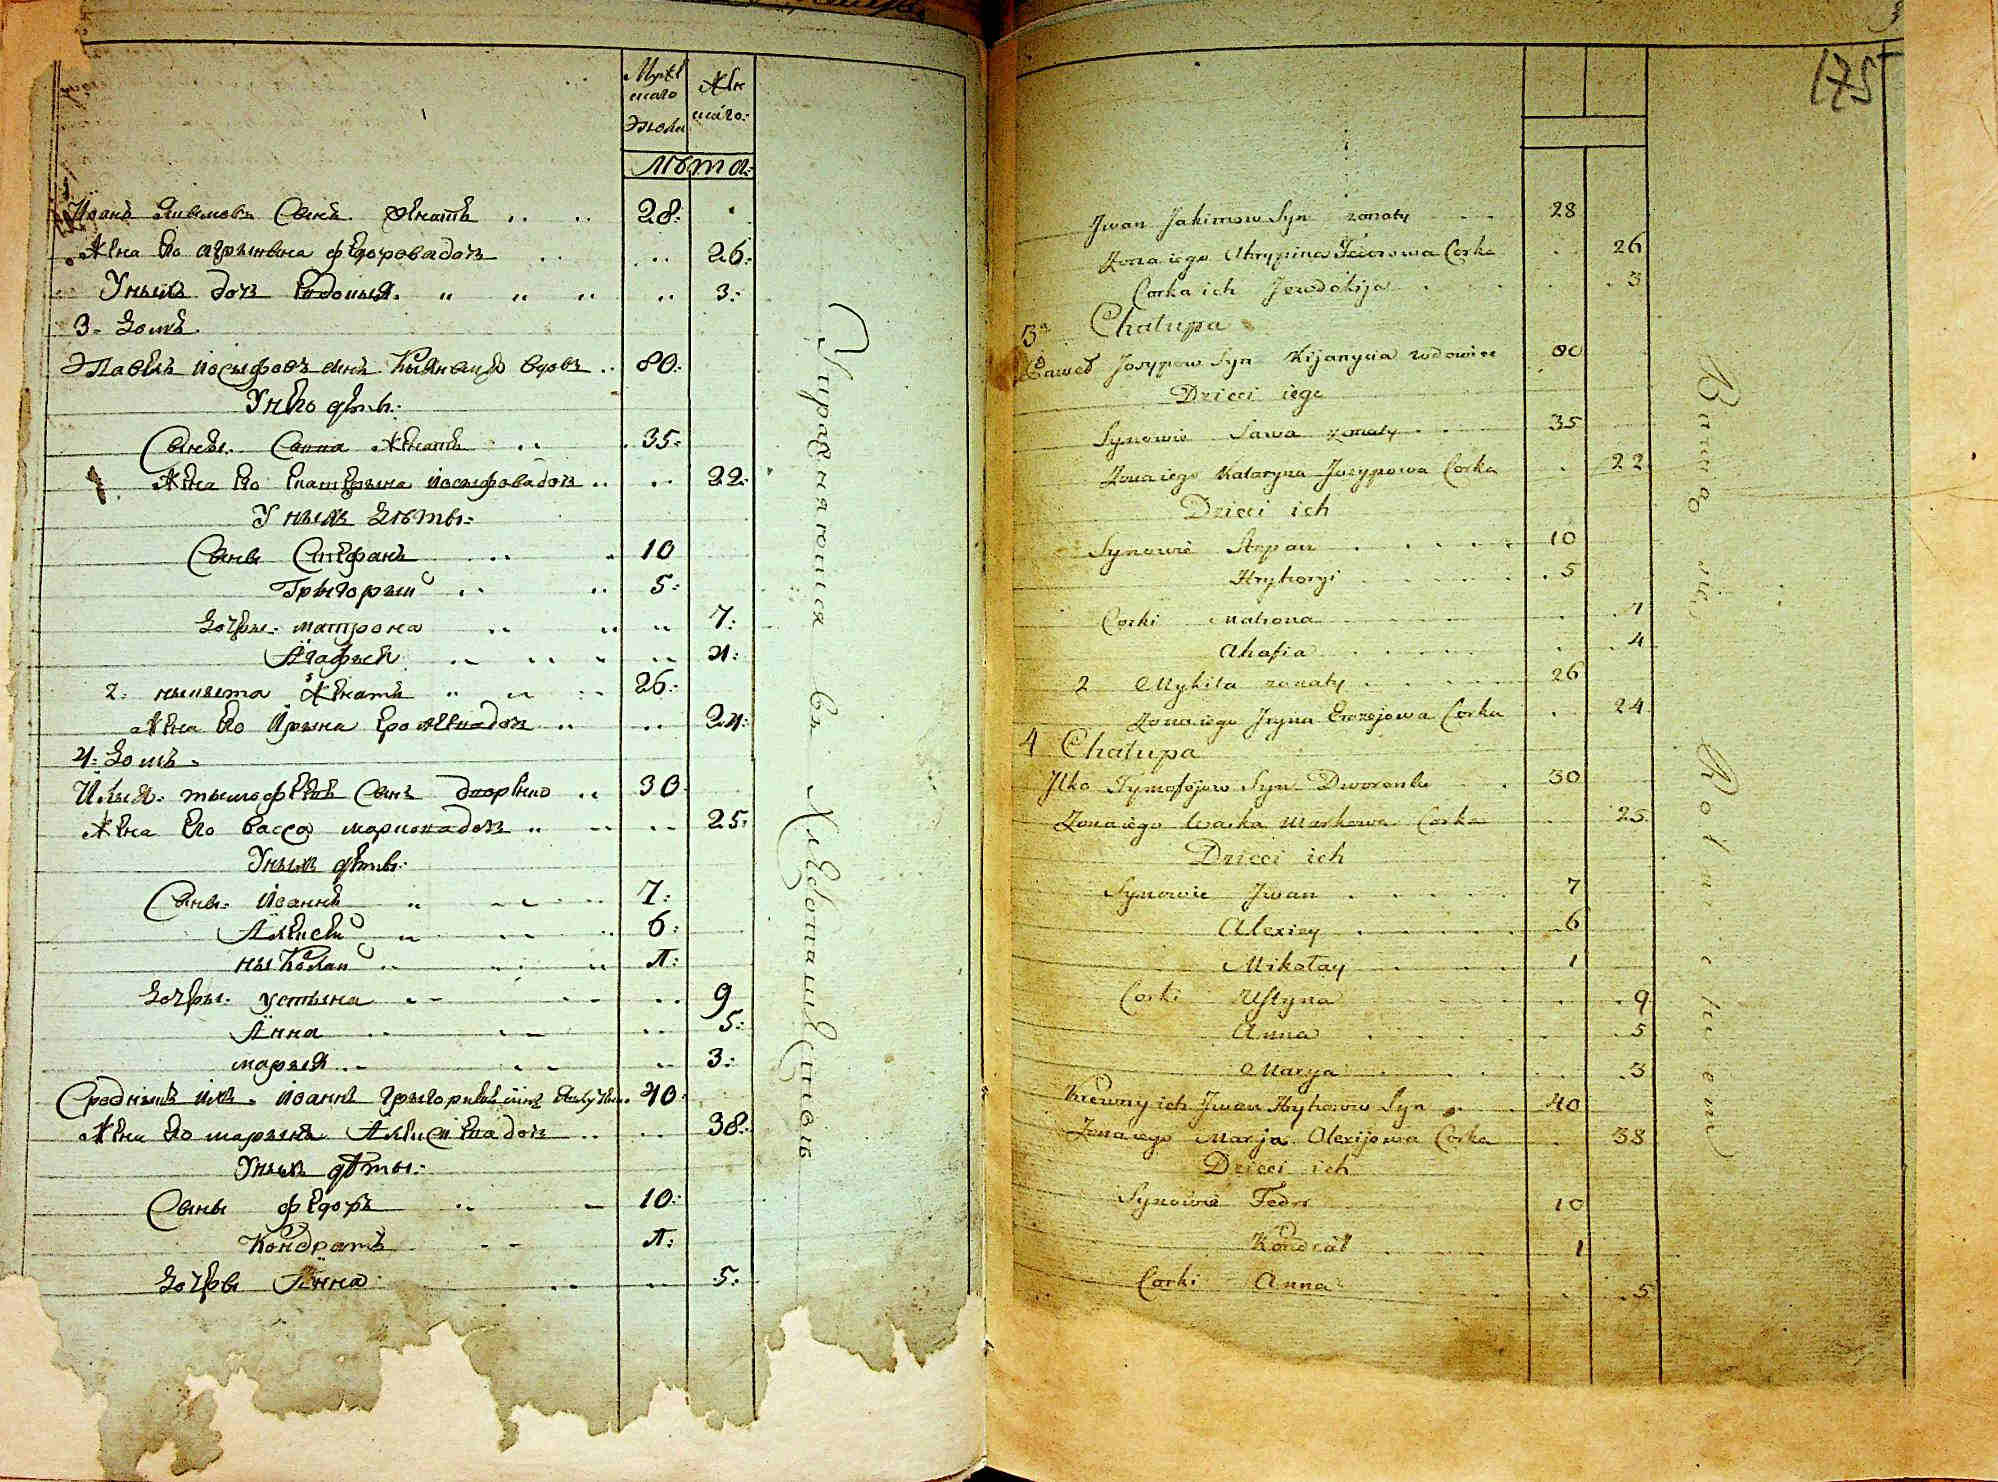 Мужескаго Полу
Женскаго:
Лѣта:
Иоанъ Якимовъ Сынъ Женатъ 28:
Жена Его Агрыпына Федорова дочь 26:
У ных дочь Евдокыя 3:
3. Домъ.
Павелъ Иосыфовъ сынъ Кыяныця вдовъ 80:
У него дѣти:
Сыны. Савва Женатъ 35:
Жена Его Екатерына Иосыфова дочь 22:
У ных Дѣты:
Сыны Стефанъ 10
Грыгорый 5:
Дочеры. Матрона 7:
Агафыя 4:
2: Никита Женатъ 26:
Жена Его Ирына дочь 24:
4: Домъ.
Илья: Тымофѣевъ Сынъ 30
Жена Его Васса Маркова дочь 25:
У ных дѣты:
Сыны. Иоаннъ 7:
Алексѣй 6:
Ныколай 1:
Дочеры. Устына 9
Анна 5:
Марыя 3:
Сродныкъ Ихъ. Иоаннъ Грыгорыевъ сынъ 40
Жена Его Марыя Алексѣева дочь 38:
У ных дѣты:
Сыны Федоръ 10:
Кондратъ 1:
Дочеры Анна 5:
Упражняются въ Хлебопашествѣ
175
Jwan Jakimow Syn zonaty 28
Zona iego Ahrypina Fedorowa Corka 26
Corka ich Jewdokija 3
3a Chalupa
Paweł Josypow Syn Kijanycia wdowiec 80
Dzieci iego
Synowie Sawa zonaty 35
Zona iego Kataryna Josypowa Corka 22
Dzieci ich
Synowie Stepan 10
Hryhoryi 5
Corki Matrona 7
Ahafia 4
2 Mykita zonaty 26
Zona iego Jryna Corka 24
4 Chalupa
Jlko Tymofojow Syn 30
Zona iego Waska Markowa Corka 25
Dzieci ich
Synowie Jwan 7
Alexiey 6
Mikołay 1
Corki Ustyna 9
Anna 5
Marya 3
Krewny ich Jwan Hryhorow Syn 40
Zona iego Marja Olexijowa Corka 38
Dzieci ich
Synowie Fedor 10
Kondrat 1
Corki Anna 5
Bawią się Rolnictwem